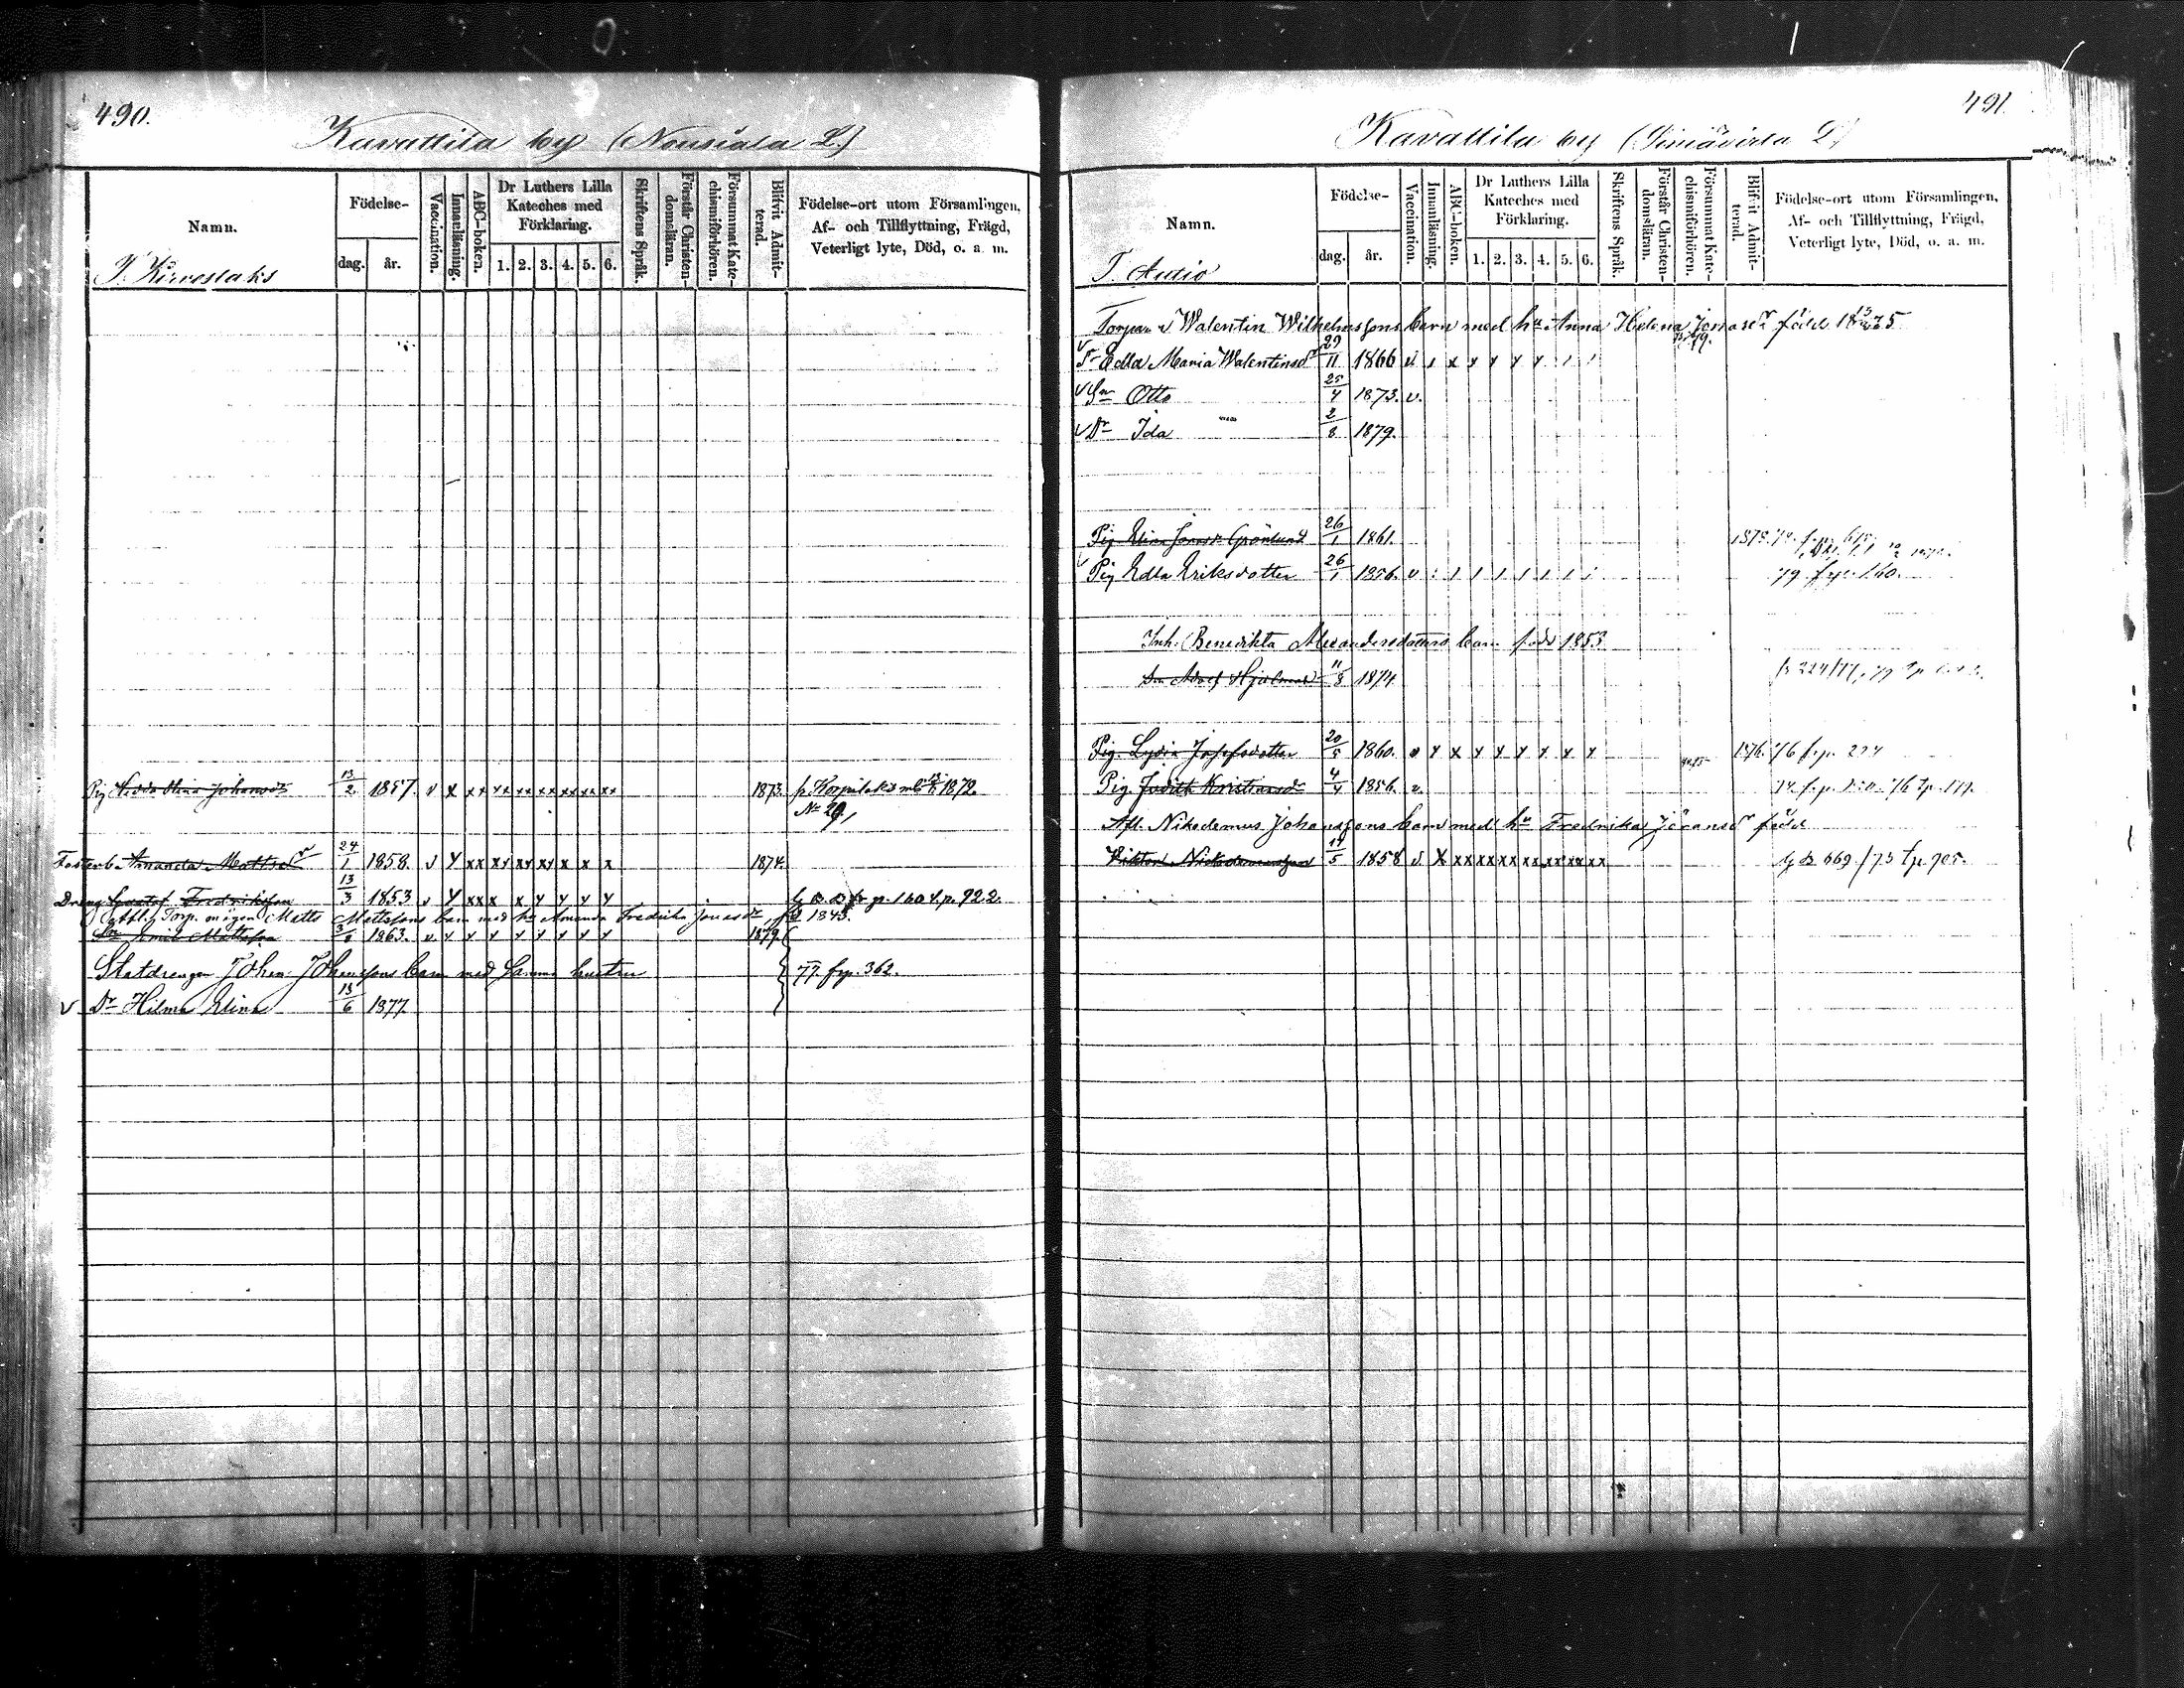 490.
Kavattila by (Nousiala L.)
Namn.
Födelse-
dag.
år.
Vaccination.
Innanläsning.
ABC-boken.
Dr Luthers Lilla Kateches med Förklaring.
1. 2. 3. 4. 5. 6.
Skriftens Språk.
Förstår Christen-domsläran.
Försummat Kate-chismiförhören.
Blifvit Admit-terad.
Födelse-ort utom Församlingen,
Af- och Tillflyttning, Frägd,
Veterligt lyte, Död, o. a. m.
T. Kirvestaks
Pig Olina Johansdr 13/2 1857. v x xx xx xx xx xx xx xx 1873. p. Korpilaks 1872.
No 29
Fosterb. Amanda Mattsdr 24/1 1858. v y xx xy xy xy x x x 1874.
Dreng Gustaf Fredriksson 13/3 1853 v y xx x x y y y y y p. 160 t.p. 922.
Afl. Torp. mågen Matts Mattssons barn med h. Amanda Fredrika Jonasdr, fd 1843.
Sn Emil Mattsson 1863. v y y y y y y y y 1879.
Statdrengen Johan Johanssons barn med samma hustru 77. frp. 362.
v Dr Hilma Elina 13/6 1877.
491.
Kavattila by (Siniävirta L.)
Namn.
Födelse-
dag.
år.
Vaccination.
Innanläsning.
ABC-boken.
Dr Luthers Lilla Kateches med Förklaring.
1. 2. 3. 4. 5. 6.
Skriftens Språk.
Förstår Christen-domsläran.
Försummat Kate-chismiförhören.
Blifvit Admit-terad.
Födelse-ort utom Församlingen,
Af- och Tillflyttning, Frägd,
Veterligt lyte, Död, o. a. m.
T. Autio
Torpar. Walentin Wilhelmssons barn med hu Anna Helena Jonasdr född
v Dr Edla Maria Walentinsdr 29/11 1866
v Sn Otto 25/4 1873. v.
v Dr Ida 2/8 1879.
Pig Elina Jonasdr Grönlund 26/1 1861.
v Pig Edla Eriksdotter 26/1 1856. v 79. frp. 160.
Inh. Benedikta Alexandersdotters barn född 1853
Sn Adolf Hjalmar 11/8 1874
Pig. Lydia Josefsdotter 20/5 1860. v y x y y y y y y 1876. 76 frp. 224
Pig Judith Kristiansdr 4/4 1856. v.
Afl. Nikodemus Johanssons barn med hu Fredrika Göransdr född
Viktor Nikodemusson 14/5 1858 v x xx xx xx xx xx xx xx 669./73 tp. 705.